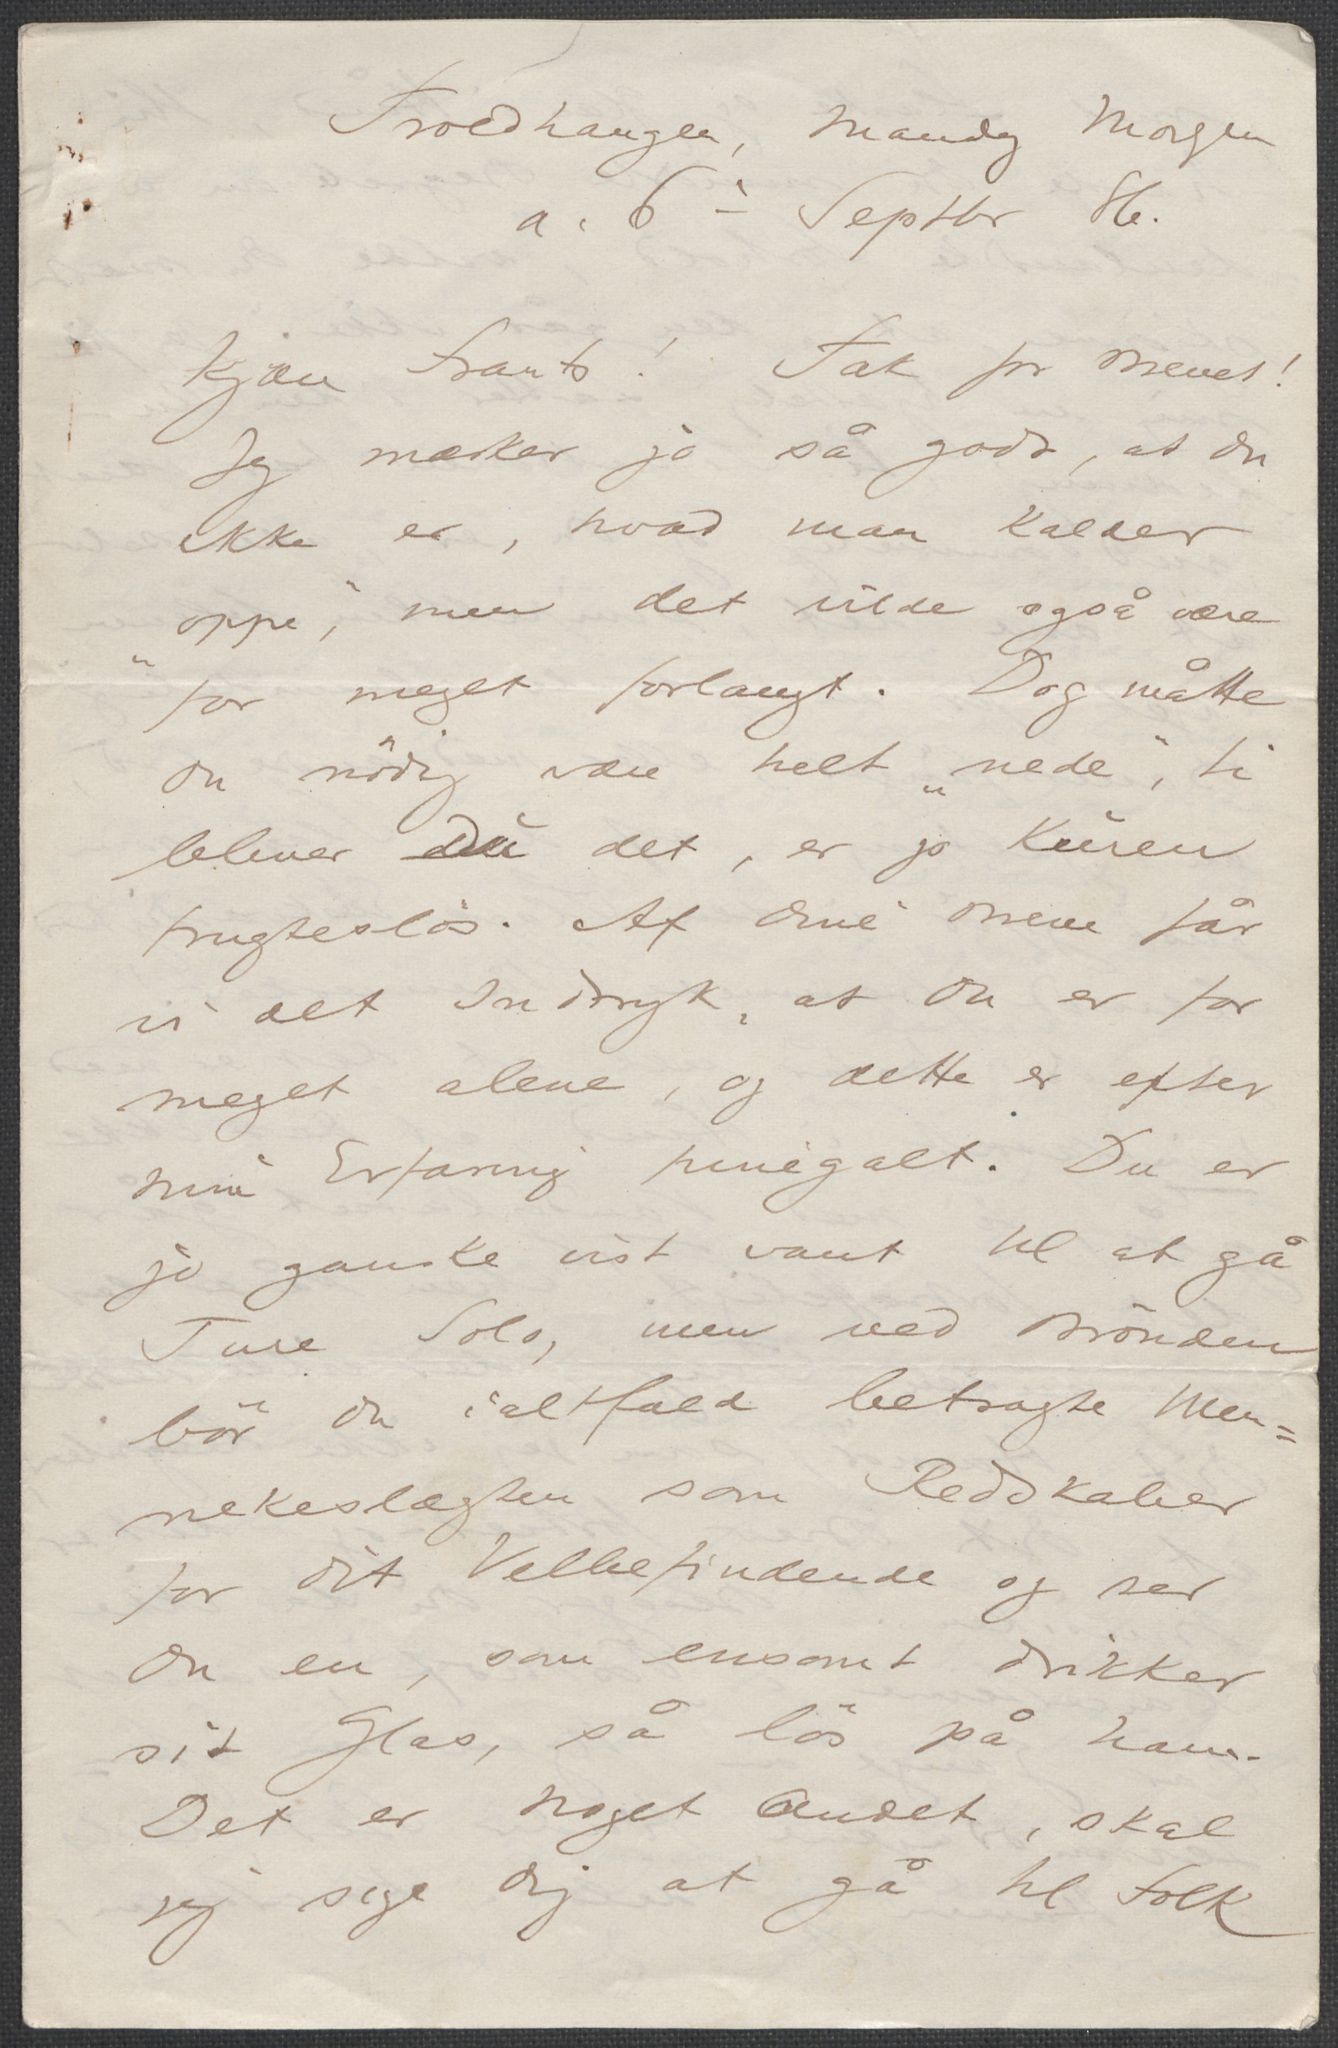 Troldhaugen, Mandag Morgen
d. 6te Septbr 86.
Kjære Frants! Tak for Brevet!
Jeg mærker jo så godt, at du
ikke er, hvad man kalder
„oppe“, men det vilde også være
for meget forlangt. Dog måtte
du nödig være helt „nede“, ti
bliver Du det, er jo Kuren
frugteslös. Af dine Breve får
vi det Indtryk, at du er for
meget alene, og dette er efter
min Erfaring pinegalt. Du er
jo ganske vist vant til at gå
Ture Solo, men ved Brönden
bör du ialtfald betragte Men=
neskeslægten som Redskaber
for dit Velbefindende og ser
du en, som ensomt drikker
sit Glas, så lös på ham.
Det er noget Andet, skal
jeg sige dig at gå til Folk